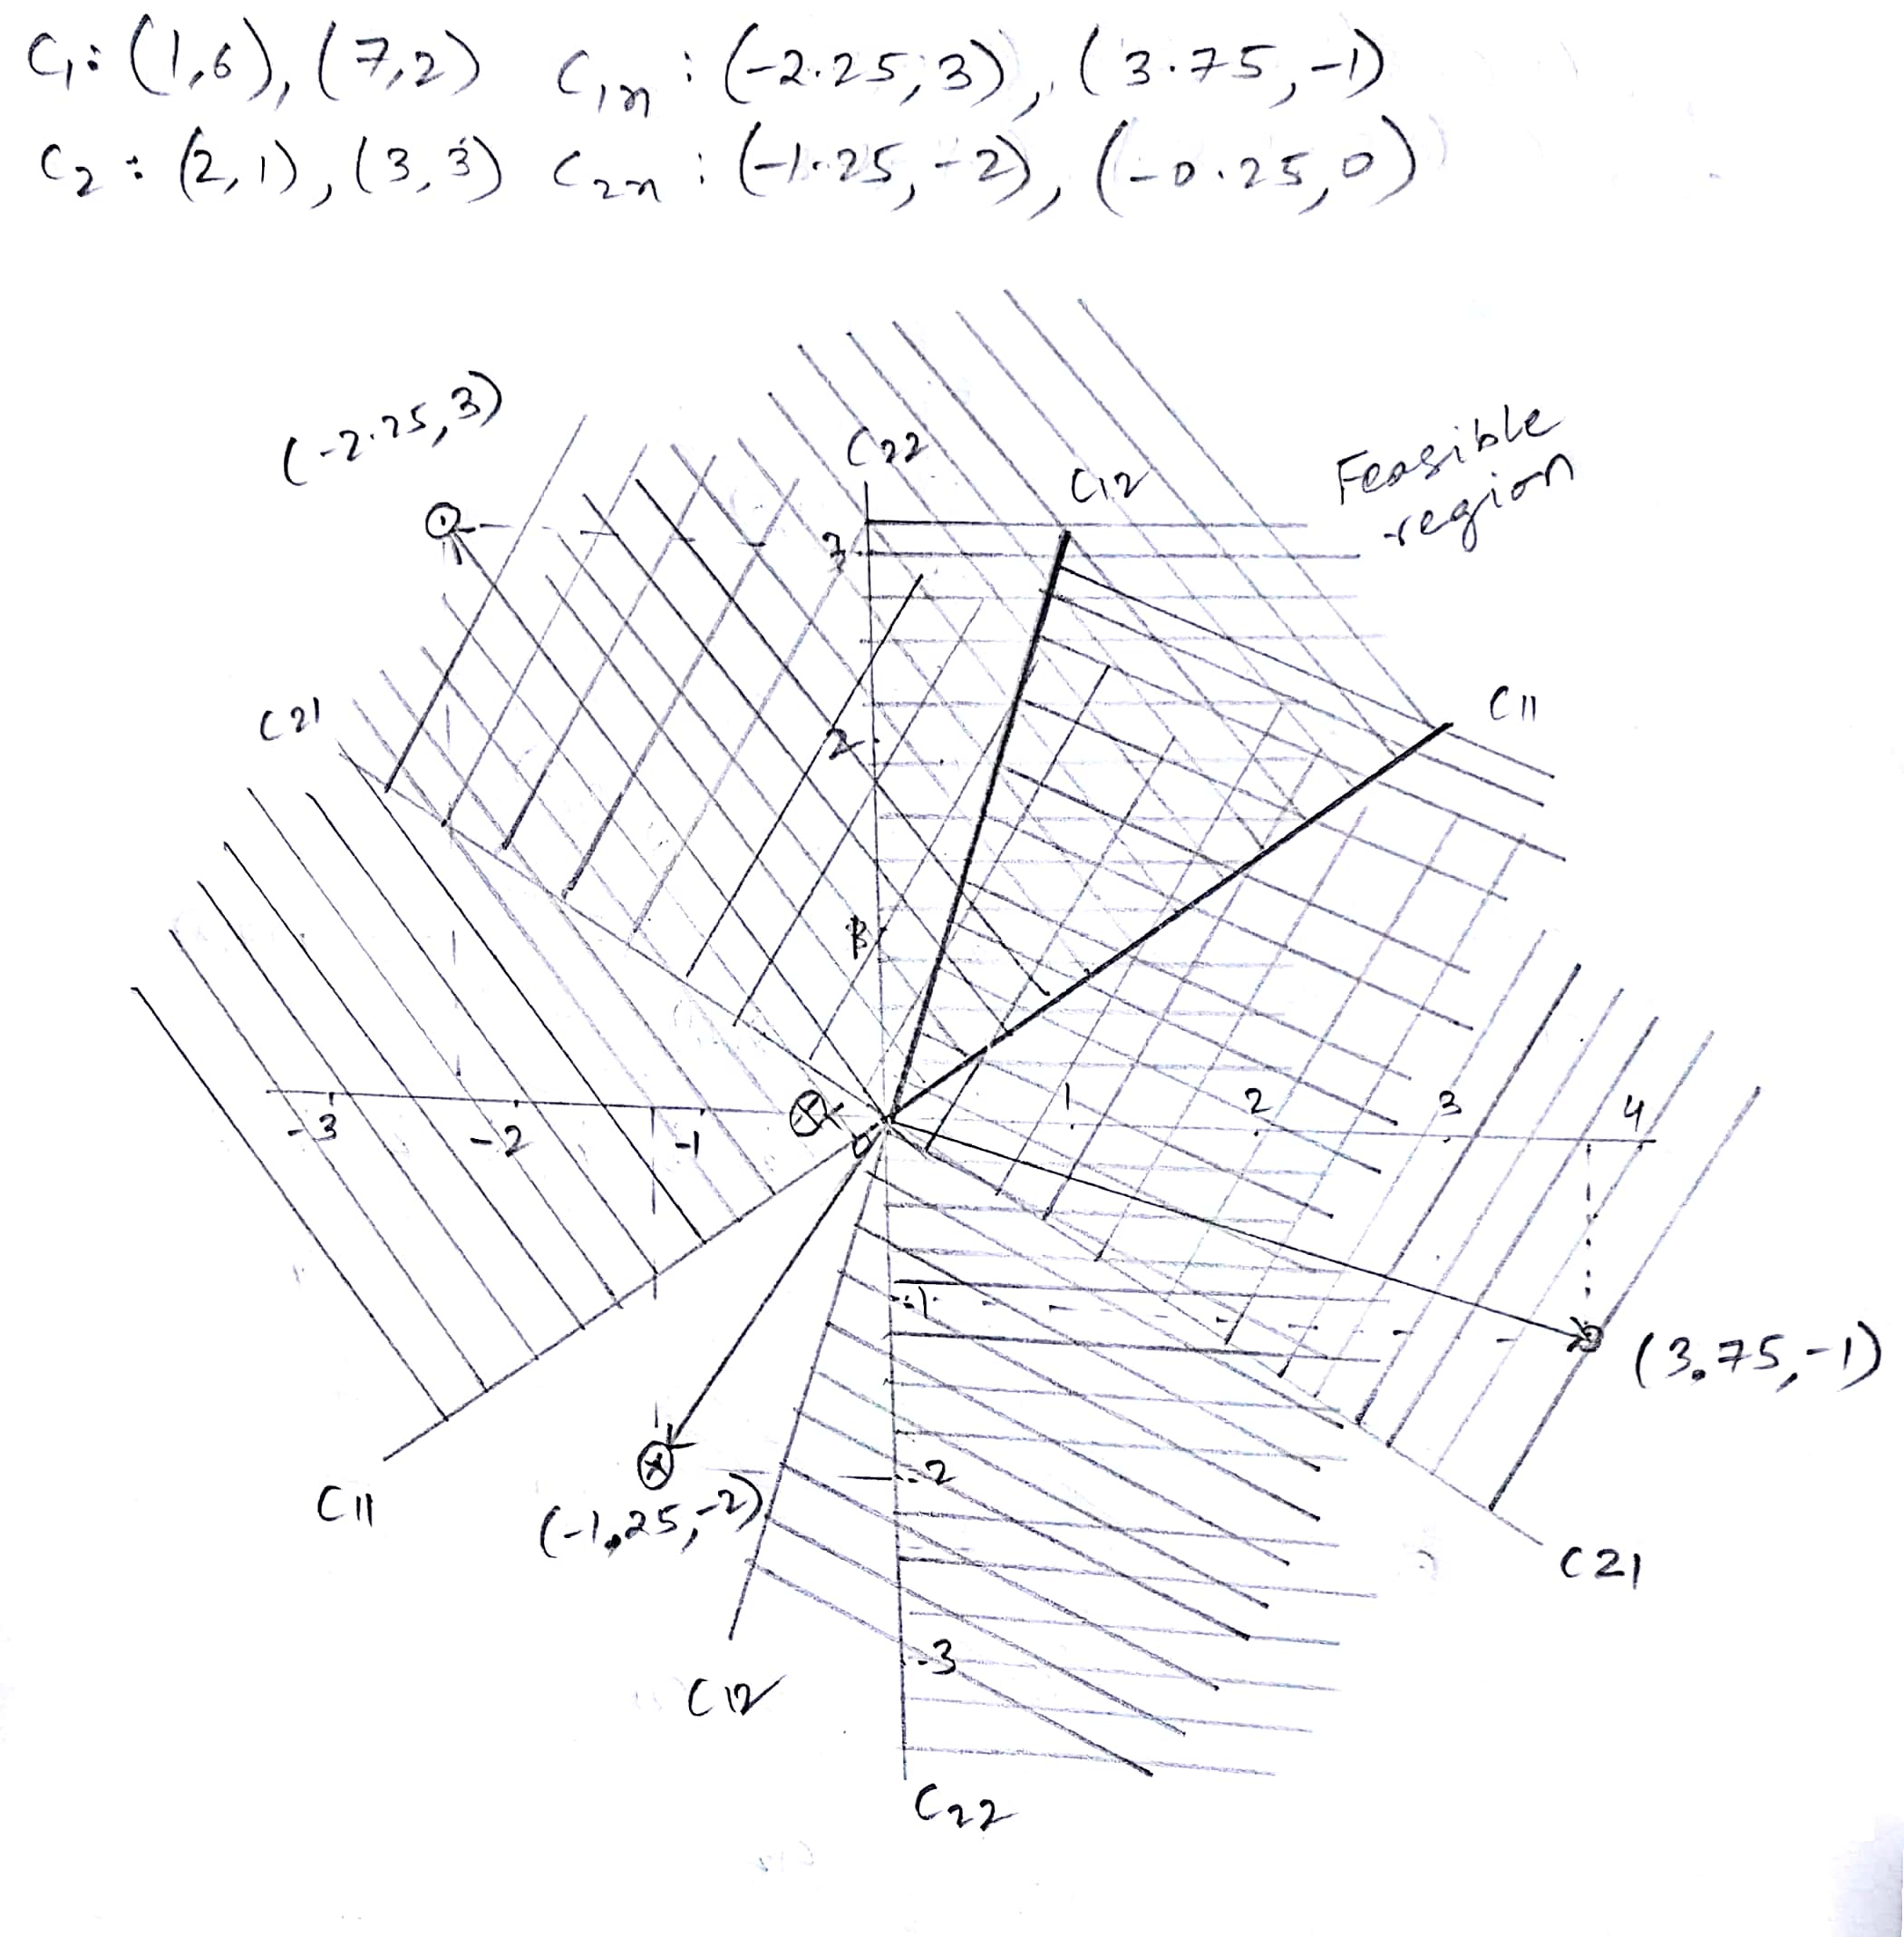 C1: (1,6), (7,2) C1n : (-2.25,3), (3.75,-1)
C2 : (2,1), (3,3) C2n : (-1.25,-2), (-0.25,0)
(-2.25,3)
C22
C12
Feasible
region
3
C21
C11
2
-3
-2
-1
1
2
3
4
-1
(3.75,-1)
-2
C11
(-1.25,-2)
C21
-3
C12
C22